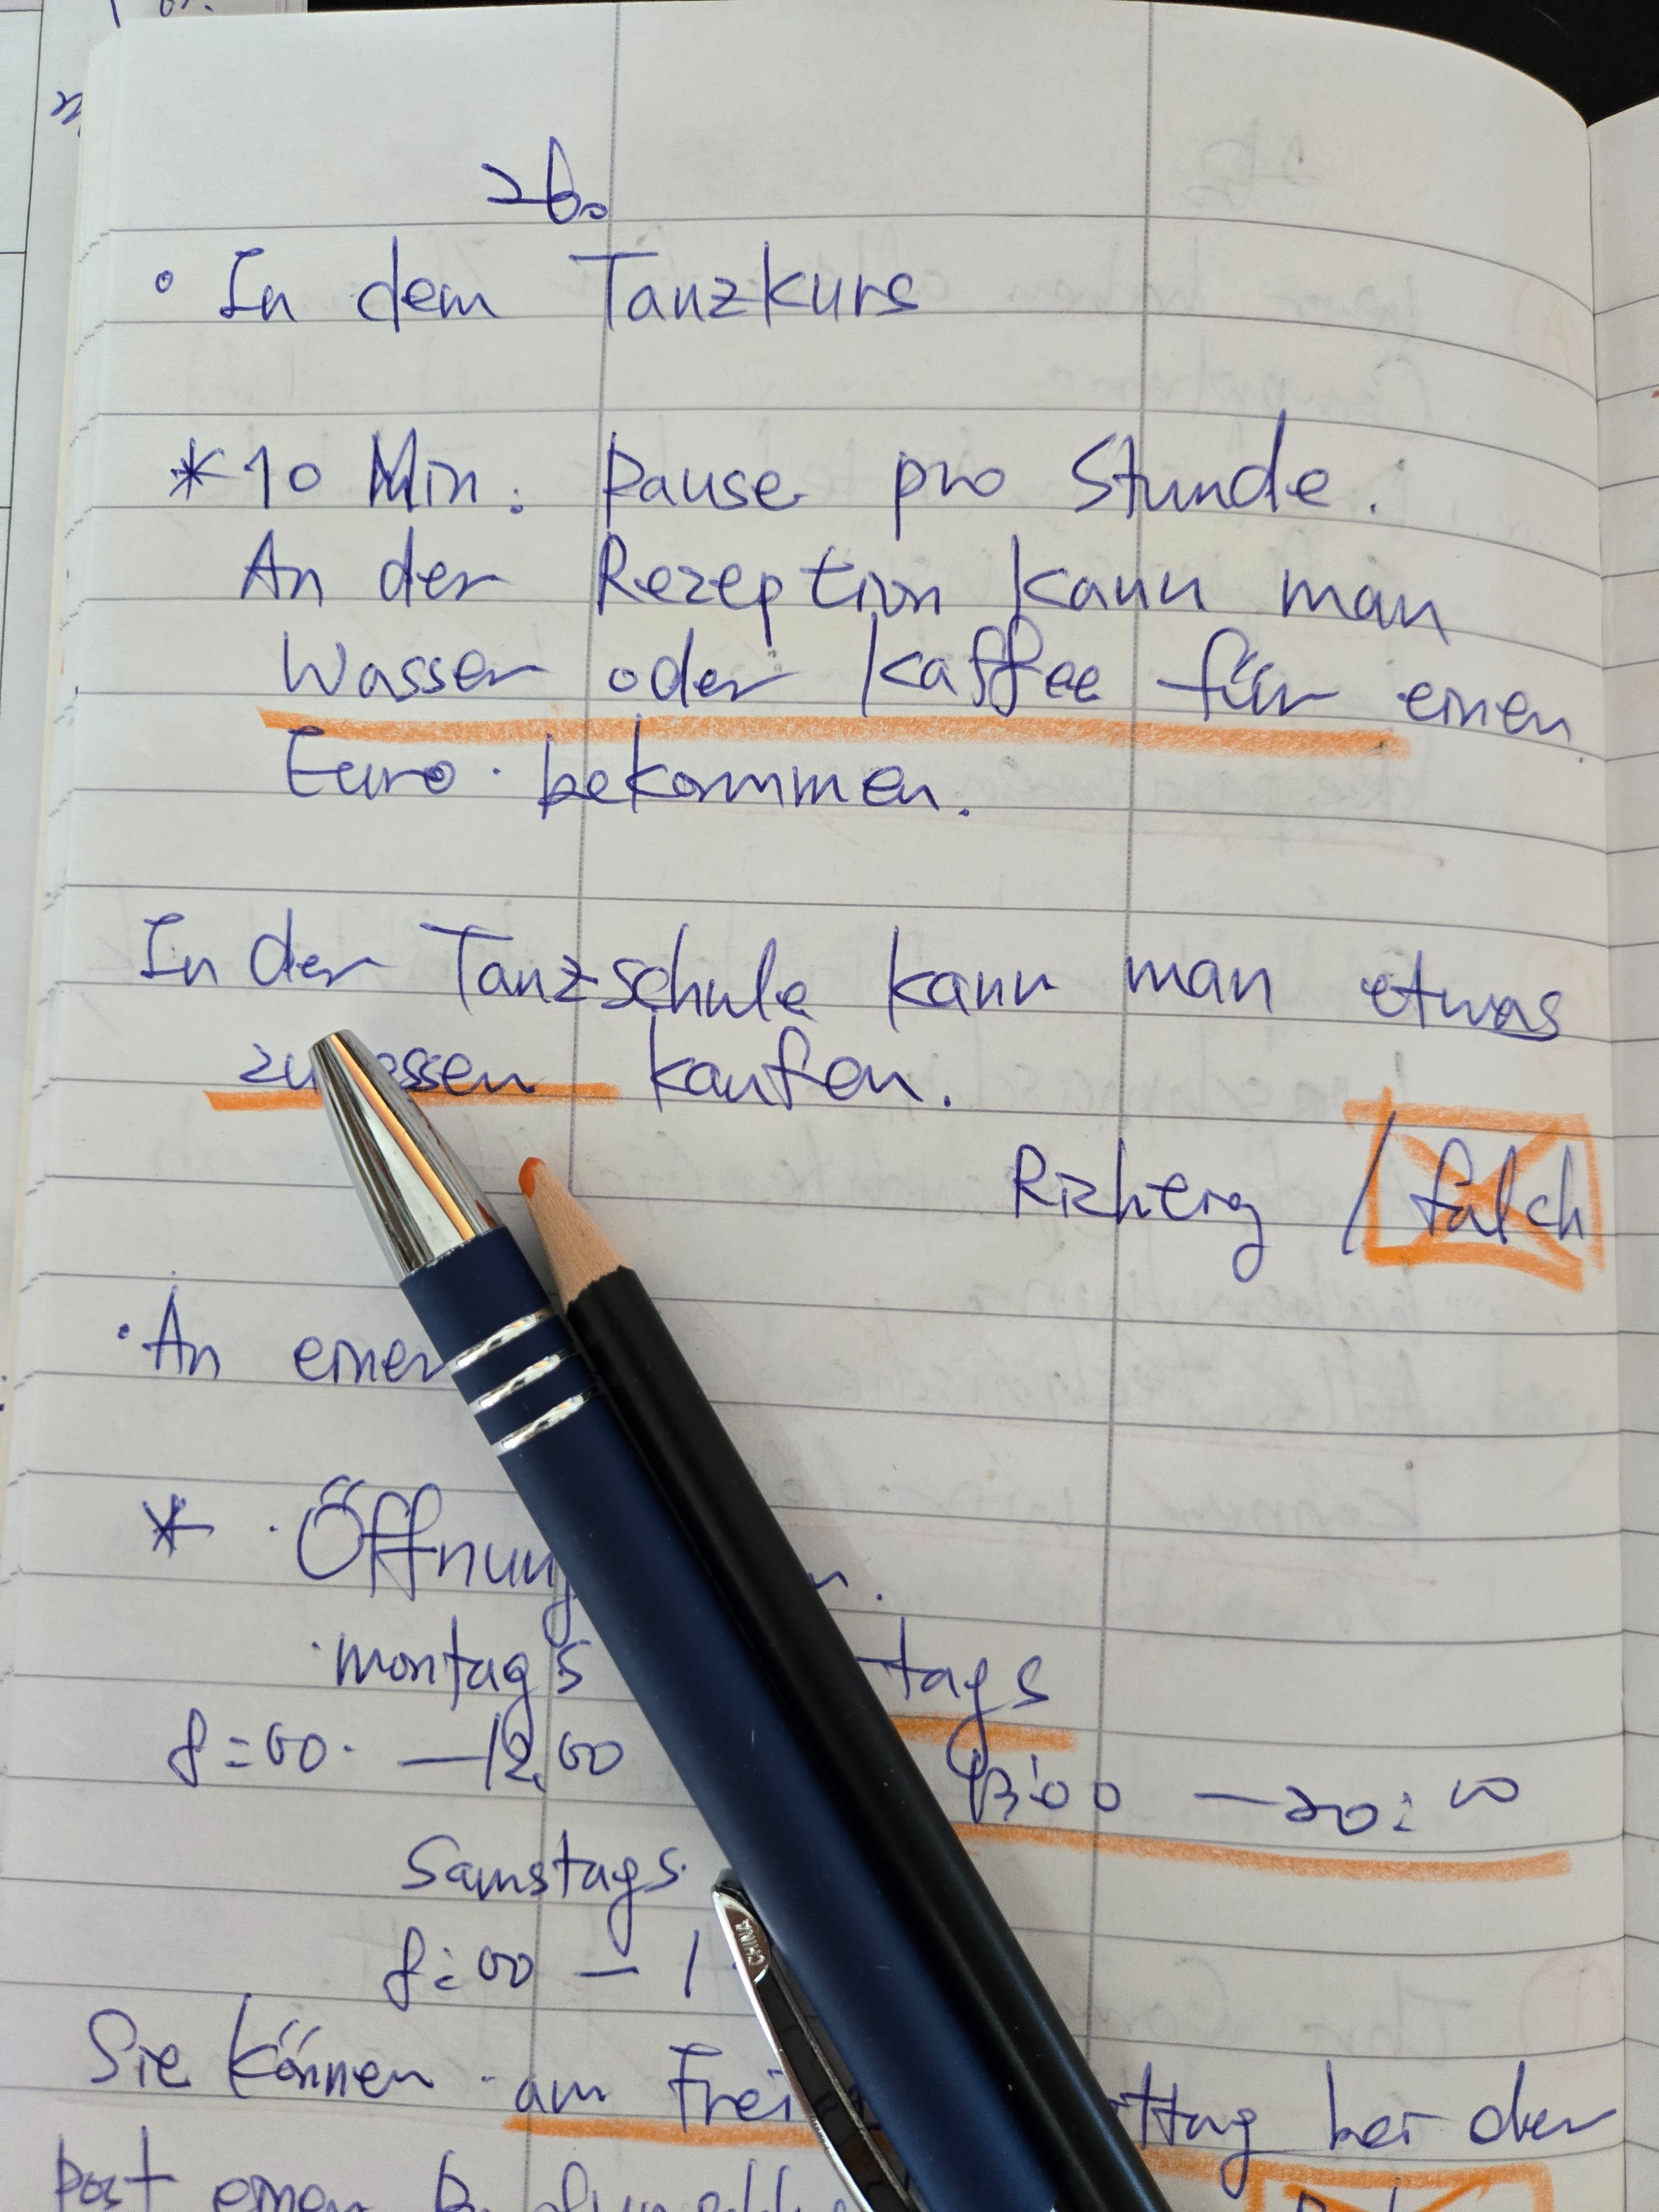 26.
• In dem Tanzkurs
* 10 Min. Pause pro Stunde.
An der Rezeption kann man
Wasser oder Kaffee für einen
Euro bekommen.
In der Tanzschule kann man etwas
zu essen kaufen.
/ falch
• An einer
*
montags tags
8:00 - 12.00 13:00 - 20:00
Samstags
8:00 - 1
CHINA
Sie können am bei der
Post einen